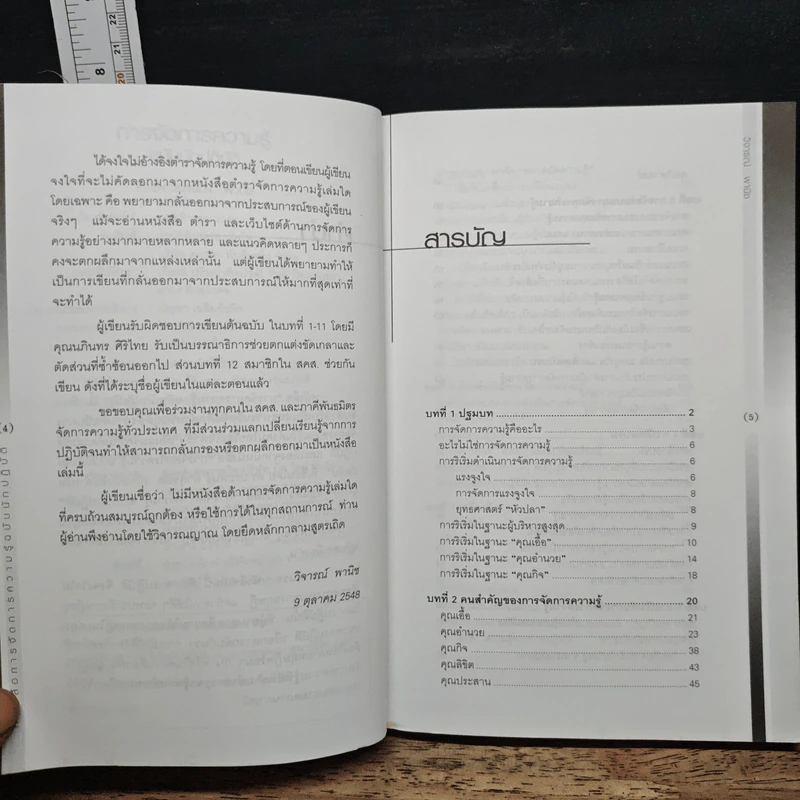 8
22
21
20
ได้จงใจไม่อ้างอิงตำราจัดการความรู้ โดยที่ตอนเขียนผู้เขียน
จงใจที่จะไม่คัดลอกมาจากหนังสือตำราจัดการความรู้เล่มใด
โดยเฉพาะ คือ พยายามกลั่นออกมาจากประสบการณ์ของผู้เขียน
จริงๆ แม้จะอ่านหนังสือ ตำรา และเว็บไซต์ด้านการจัดการ
ความรู้อย่างมากมายหลากหลาย และแนวคิดหลายๆ ประการก็
คงจะตกผลึกมาจากแหล่งเหล่านั้น แต่ผู้เขียนได้พยายามทำให้
เป็นการเขียนที่กลั่นออกมาจากประสบการณ์ให้มากที่สุดเท่าที่
จะทำได้
ผู้เขียนรับผิดชอบการเขียนต้นฉบับ ในบทที่ 1-11 โดยมี
คุณนภินทร ศิริไทย รับเป็นบรรณาธิการช่วยตกแต่งขัดเกลาและ
ตัดส่วนที่ซ้ำซ้อนออกไป ส่วนบทที่ 12 สมาชิกใน สคส. ช่วยกัน
เขียน ดังที่ได้ระบุชื่อผู้เขียนในแต่ละตอนแล้ว
ขอขอบคุณเพื่อร่วมงานทุกคนใน สคส. และภาคีพันธมิตร
จัดการความรู้ทั่วประเทศ ที่มีส่วนร่วมแลกเปลี่ยนเรียนรู้จากการ
ปฏิบัติจนทำให้สามารถกลั่นกรองหรือตกผลึกออกมาเป็นหนังสือ
เล่มนี้
ผู้เขียนเชื่อว่า ไม่มีหนังสือด้านการจัดการความรู้เล่มใด
ที่ครบถ้วนสมบูรณ์ถูกต้อง หรือใช้การได้ในทุกสถานการณ์ ท่าน
ผู้อ่านพึงอ่านโดยใช้วิจารณญาณ โดยยึดหลักกาลามสูตรเถิด
วิจารณ์ พานิช
9 ตุลาคม 2548
(4)
การจัดการความรู้ฉบับนักปฏิบัติ
วิจารณ์ พานิช
สารบัญ
บทที่ 1 ปฐมบท 2
การจัดการความรู้คืออะไร 3
อะไรไม่ใช่การจัดการความรู้ 6
การริเริ่มดำเนินการจัดการความรู้ 6
แรงจูงใจ 6
การจัดการแรงจูงใจ 8
ยุทธศาสตร์ "หัวปลา" 8
การริเริ่มในฐานะผู้บริหารสูงสุด 9
การริเริ่มในฐานะ "คุณเอื้อ" 10
การริเริ่มในฐานะ "คุณอำนวย" 14
การริเริ่มในฐานะ "คุณกิจ" 18
บทที่ 2 คนสำคัญของการจัดการความรู้ 20
คุณเอื้อ 21
คุณอำนวย 23
คุณกิจ 38
คุณลิขิต 43
คุณประสาน 45
(5)